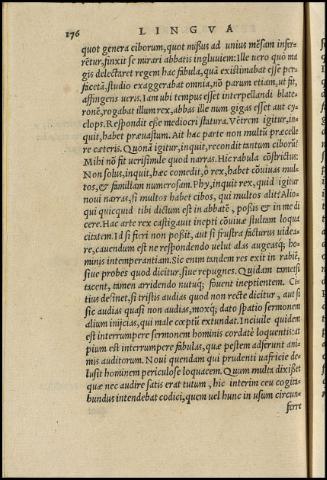 176 LINGVA
quot genera ciborum, quot missus ad unius mēsam infer-
rētur, finxit se mirari abbatis ingluuiem: Ille uero quo ma
gis delectaret regem hac fabula, quā existimabat esse per-
facetā, studio exaggerabat omnia, nō parum etiam, ut fit,
affingens ueris. Iam ubi tempus esset interpellandi blate-
ronē, rogabat illum rex, abbas ille num gigas esset aut cy-
clops. Respondit esse mediocri statura. Ventrem igitur, in-
quit, habet præuastum. Ait hac parte non multū præcelle
re cæteris. Quonā igitur, inquit, recondit tantum ciborū?
Mihi nō fit uerisimile quod narras. Hic rabula cōstrictus:
Non solus, inquit, hæc comedit, ô rex, habet cōuiuas mul
tos, & familiam numerosam. Phy, inquit rex, quid igitur
noui narras, si multos habet cibos, qui multos alit? Alio-
qui quicquid tibi dictum est in abbatē, posset & in me di
cere. Hac arte rex castigauit inepti cōuiuæ stultam loqua
citatem. Id si fieri non possit, aut si frustra facturus uidea-
re, cauendum est ne respondendo uelut alas augeasq; ho-
minis intemperantiam. Sic enim tandem res exit in rabiē,
siue probes quod dicitur, siue repugnes. Quidam tametsi
tacent, tamen arridendo nutuq; fouent ineptientem. Ci-
tius desinet, si tristis audias quod non recte dicitur, aut si
sic audias quasi non audias, moxq; dato spatio sermonem
alium inijcias, qui male cœptū extundat. Inciuile quidem
est interrumpere sermonem hominis cordatè loquentis: at
pium est interrumpere fabulas, quæ pestem adferunt ani-
mis auditorum. Noui quendam qui prudenti uafricie de-
lusit hominem periculose loquacem. Quum multa dixisset
quæ nec audire satis erat tutum, hic interim ceu cogita-
bundus intendebat codici, quem uel hunc in usum circun-
ferre